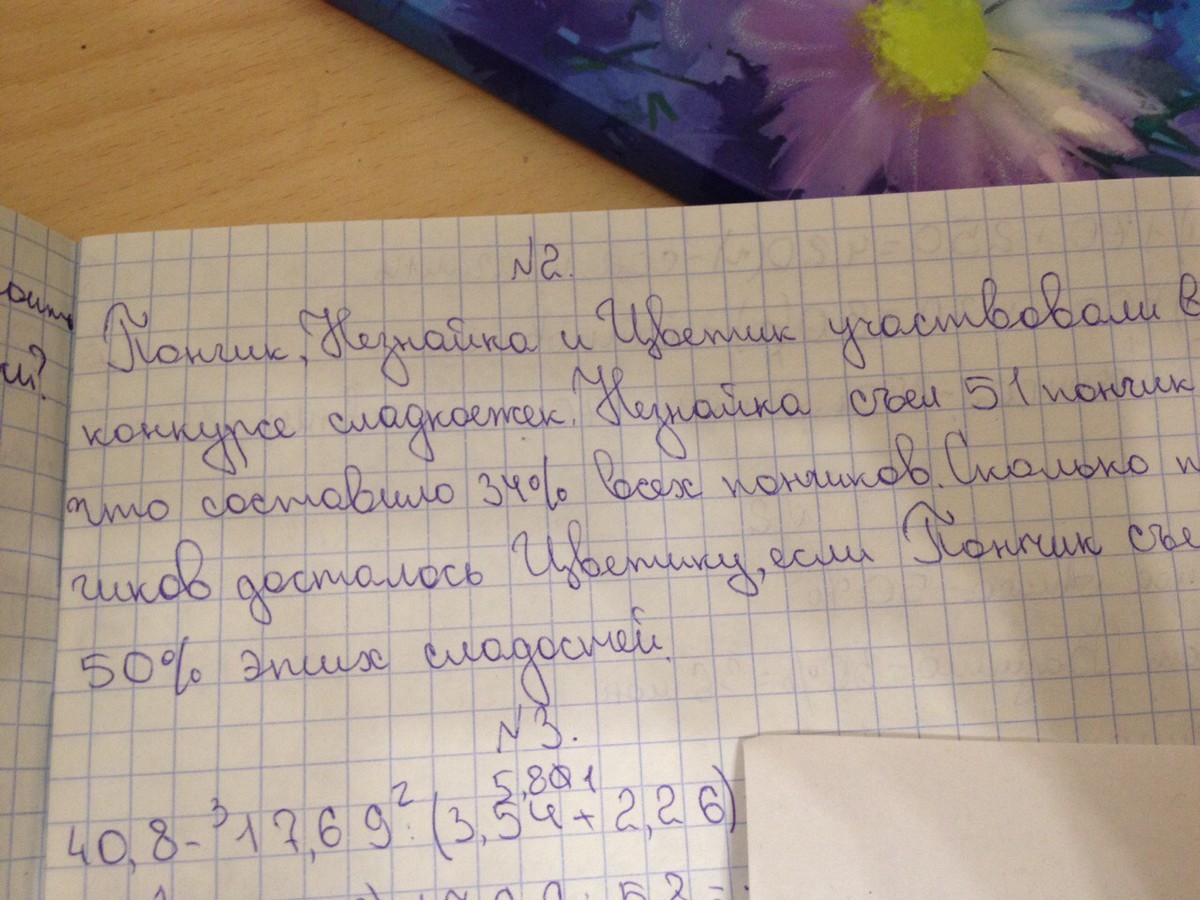 N2.
Пончик, Незнайка и Цветик участвовали в
конкурсе сладкоежек. Незнайка съел 51 пончик
что составило 34% всех пончиков. Сколько п
чиков досталось Цветику, если Пончик съе
50% этих сладостей.
N3.
5,80 1
40,8-³17,69²:(3,54+2,26)
ои?